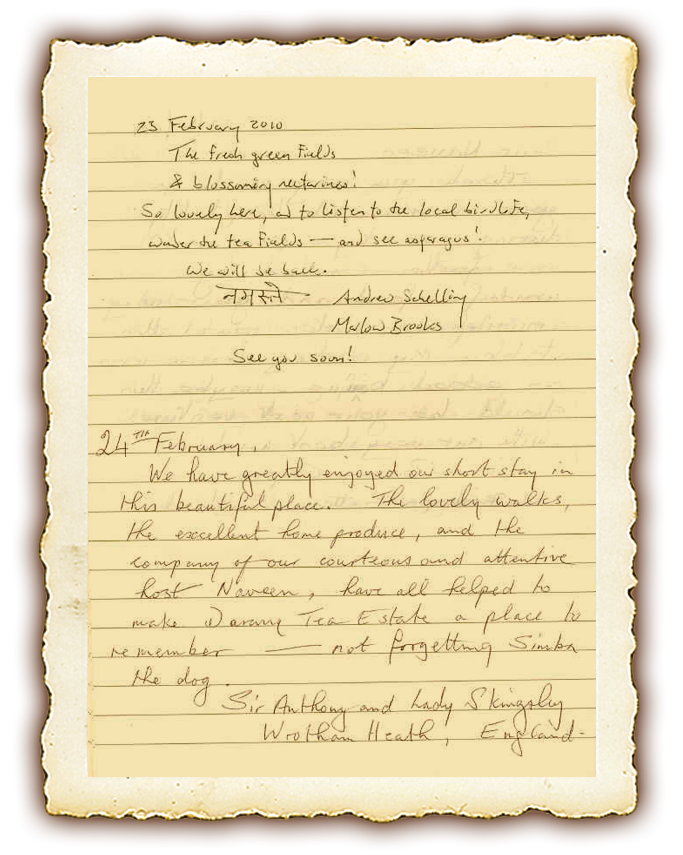 23 February 2010
The fresh green fields
& blossoming nectarines!
So lovely here, and to listen to the local birdlife,
wander the tea fields — and see asparagus!
We will be back.
नमस्ते Andrew Schelling
Marlow Brooks
See you soon!
24TH February.
We have greatly enjoyed our short stay in
this beautiful place. The lovely walks,
the excellent home produce, and the
company of our courteous and attentive
host Naveen, have all helped to
make Darang Tea Estate a place to
remember — not forgetting Simba
the dog.
Sir Anthony and Lady Skingsley
Wrotham Heath, England.